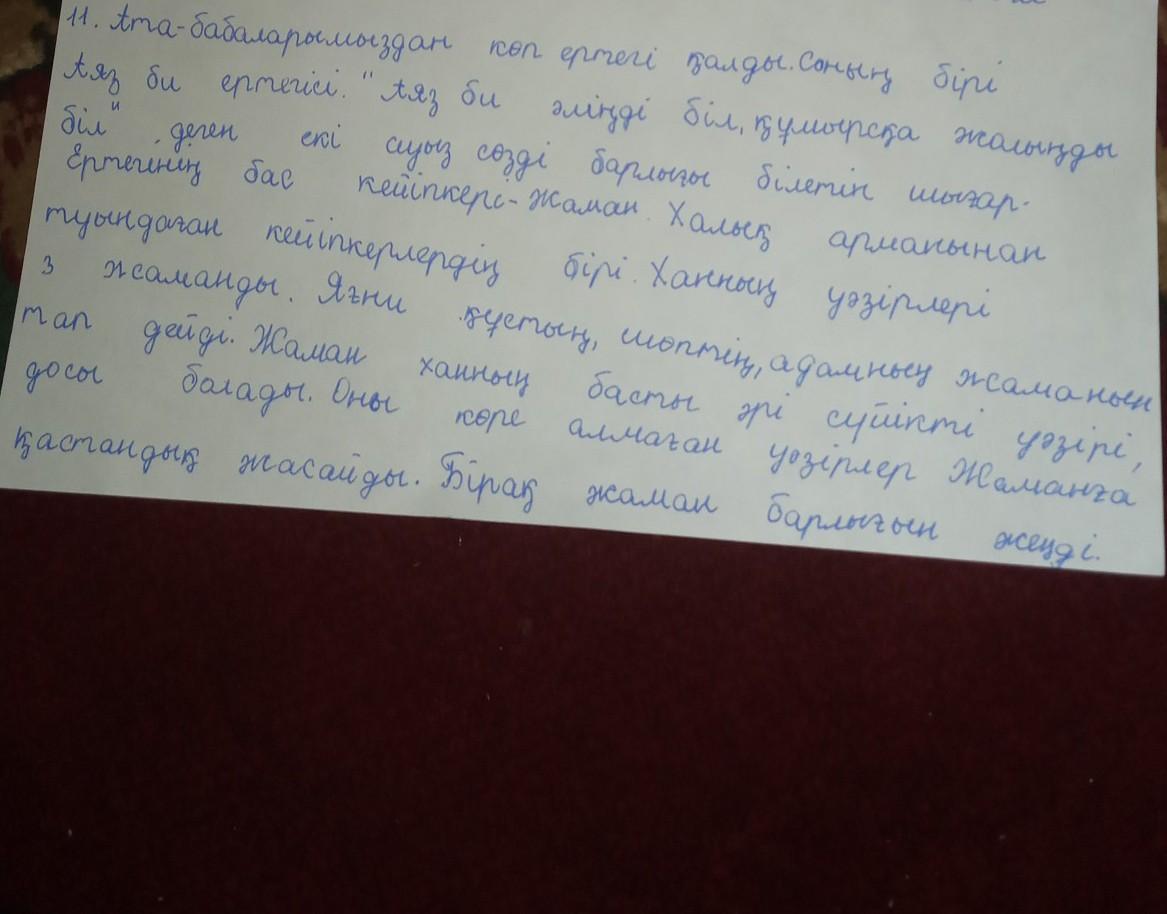 11. Ата-бабаларымыздан көп ертегі қалды. Соның бірі
Аяз би ертегісі. "Аяз би әліңді біл, құмырсқа жолыңды
біл" деген екі ауыз сөзді барлығы білетін шығар.
Ертегінің бас кейіпкері-Жаман. Халық арманынан
туындаған кейіпкерлердің бірі. Ханның уәзірлері
3 жаманды. Яғни құстың, шөптің, адамның жаманын
тап дейді. Жаман ханның басты әрі сүйікті уәзірі,
досы болады. Оны көре алмаған уәзірлер Жаманға
қастандық жасайды. Бірақ жаман барлығын жеңді.